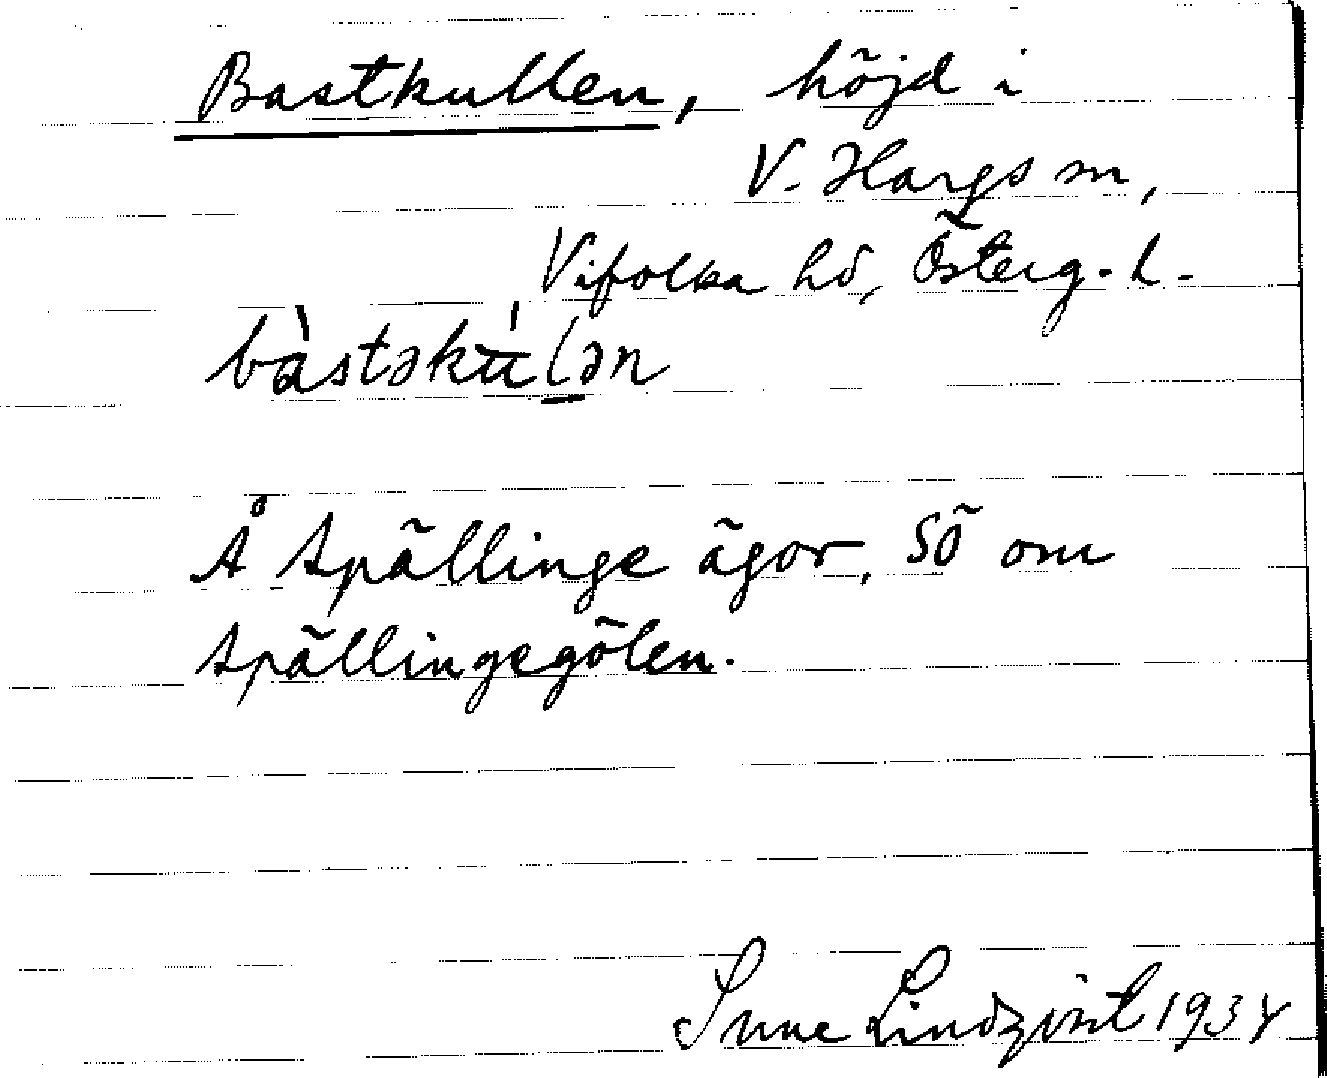 Bastkullen, höjd i
V. Hargs sn,
Vifolka hd, Österg. l.
bàstəkúlən
Å Spällinge ägor, SÖ om
Spällingegölen.
Sune Lindqvist 1934